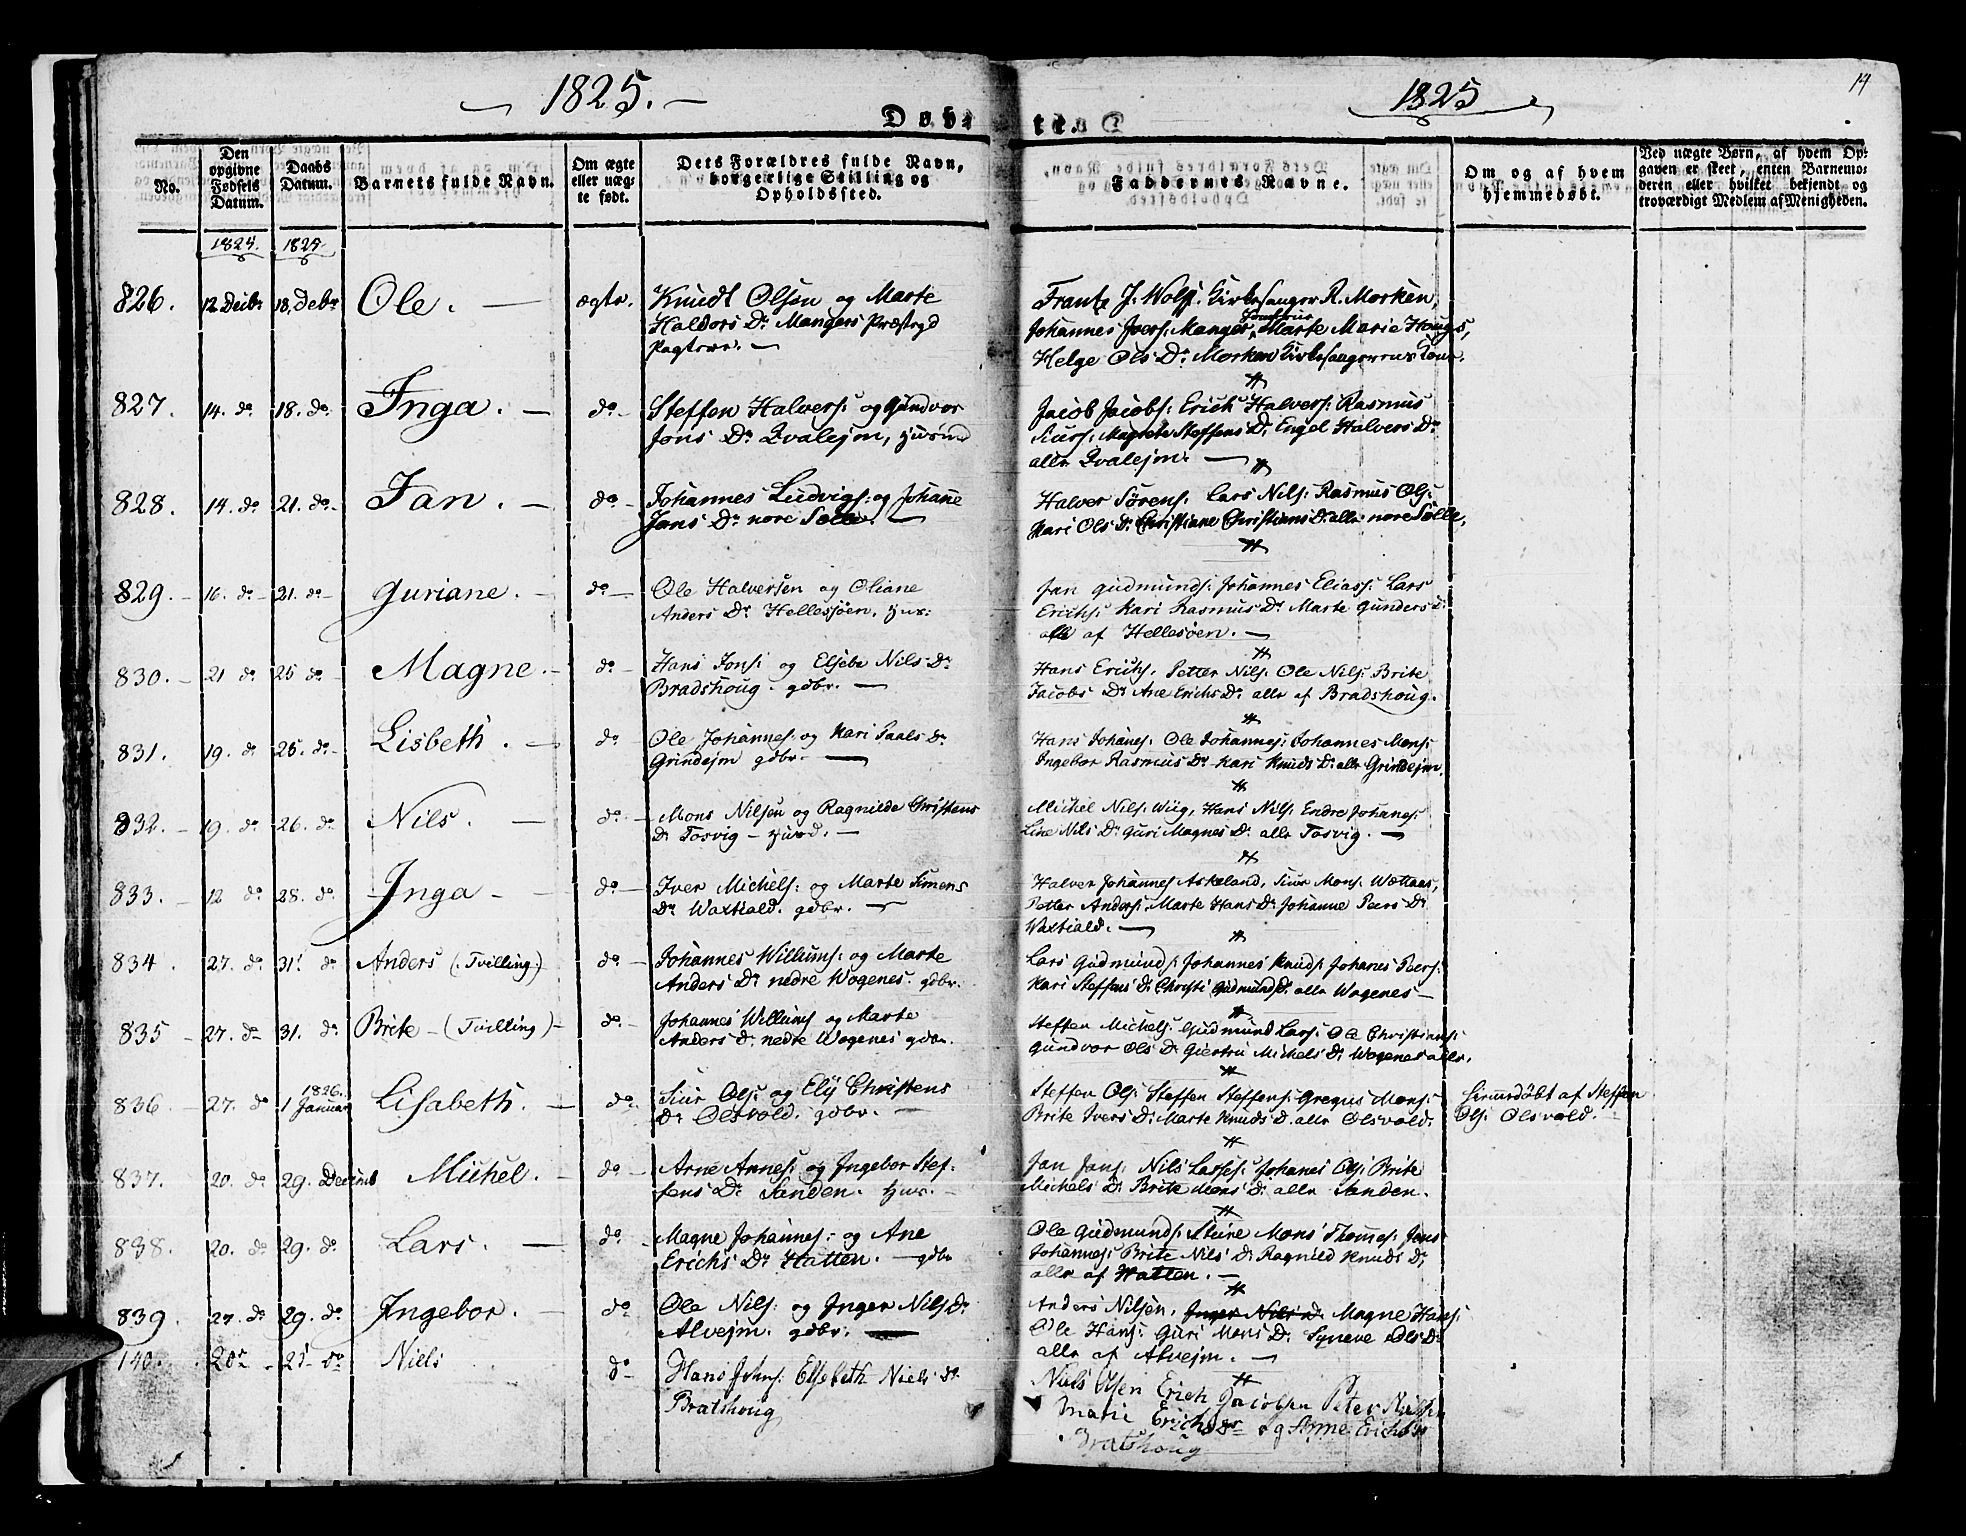 1825.
1825
14
Døbte
No.
Den opgivne Fødsels Datum.
Daabs Datum.
Barnets fulde Navn.
Om ægte eller uægte født.
Dets Forældres fulde Navn, borgerlige Stilling og Opholdssted.
Faddernes Navne.
Om og af hvem hjemmedøbt.
Ved uægte Børn, af hvem Opgaven er skeet, enten Barnemoderen eller hvilket bekjendt og troværdigt Medlem af Menigheden.
1825. 1825.
826. 12 Decbr 18. Debr Ole. ægte.
Knudt Olsøn og Marte
Haldors Dr. Mangers Præstegd
Frantz J. Wolf. Kirkesanger R. Morken,
Johannes Joers: Manger, Marte Marie Hougs,
Helge Ols Dr. Morken Kirkesangerens Kone.
827. 14. do 18. do Inga. do
Steffen Halvers: og Gundvor
Jons Dr. Qvalejm, husmd
Jacob Jacobs: Erich Halvers: Rasmus
Siurs: Magrete Steffens D. Engel Halvers Dr
alle Qvalejm.
828. 14. do 21. do Jan. do
Johannes Ludvigs: og Johane
Jans Dr. nore Sølle.
Halver Sørens: Lars Nils: Rasmus Ols:
Kari Ols D. Christiane Christians D. alle nore Sølle,
829. 16. do 21. do Guriane. do
Ole Halversen og Oliane
Anders Dr. Hellesøen, hus:
Jan Gudmunds: Johannes Elias: Lars
Erichs: Kari Rasmus Dr. Marte Gunders D:
alle af Hellesøen.
830. 21 do 25 do Magne. do
Hans Jons: og Elsebe Nils Dr
Bradshoug. gdbr.
Hans Erichs. Petter Nils. Ole Nils: Brite
Jacobs Dr Ane Erichs Dr. alle af Bradshoug.
831. 19. do 26. do Lisbeth. do
Ole Johannes: og Kari Paals Dr
Grindejm gdbr.
Hans Johanes. Ole Johannes: Johannes Mons:
Ingebor Rasmus Dr. Kari Knuds D. alle Grindejm.
832. 19. do 26. do Nils. do
Mons Nilsen og Ragnilde Christens
Dr Tosvig husmd.
Michel Nils: Wiig, Hans Nils. Endre Johanes:
Line Nils D. Guri Magnes D. alle Tosvig.
833. 12 do 28. do Inga do
Iver Michels: og Marte Simens
Dr. Waxtiald. gdbr.
Halver Johannes Askeland, Siur Mons: Wættaas,
Petter Anders: Marte Hans D. Johanne Peers D.
Waxtiald.
834. 27. do 31. do Anders (Tvilling) do
Johannes Willums: og Marte
Anders D. nedre Wogenes. gdbr.
Lars Gudmunds: Johannes Knuds: Johanes Peers:
Kari Steffens D. Christi Gudmunds D. alle Wogenes
835 27. do 31. do Brite (Tvilling) do
Johannes Willums og Marte
Anders D. nedre Wogenes gdbr.
Steffen Michels: Gudmund Lars: Ole Christians:
Gundvor Ols D. Giertru Michels D. Wogenes alle.
836 27. do 1826. 1 Januar Lisabeth. do
Siur Ols: og Ely Christens
Dr Oesvold. gdbr.
Steffen Ols: Steffen Steffens: Gregus Mons:
Brite Ivers D. Marte Knuds D. alle Olsvold.
hiemedøbt af Steffen
Ols: Olsvold.
837. 20. do 29. Decemb Michel. do
Arne Annes: og Ingebor Stef-
fens Dr. Sanden. hus.
Jan Jans: Nils Lasses: Johanes Ols: Brite
Michels D. Brite Mons D. alle Sanden.
838. 20. do 29. do Lars. do
Magne Johannes: og Ane
Erichs Dr. Hatten. gdbr
Ole Gudmunds: Sture Mons Thomes: Jens
Johannes: Brite Nils D. Ragnild Knuds D.
alle af Hatten.
839. 27. do 29. do Ingebor. do
Ole Nils: og Inger Nils D.
Alvejm. gdbr.
Anders Nilsen, Inger Nils D. Magne Hans:
Ole Hans: Guri Mons D. Syneve Ols D.
alle af Alvejm.
140. 20 25 do Niels do
Hans Johns: Elsebeth Niels Dr
Bratshoug
Niels Olsen Erich Jacobsen Peter Nielsen
Marie Erichs Dr og Anne Erichs Dr
Bratshoug